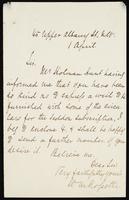 45 Upper Albany St. N.W.
1 April
Sir
Mr Holman Hunt having
informed me that you have been
so kind as to
furnished with some of the circu-
lars for the Seddon Subscription, I
beg to enclose 4, & shall be happy
to send a further number if you
desire it. Believe me
Dear Sir
Very faithfully yours
W. M. Rossetti